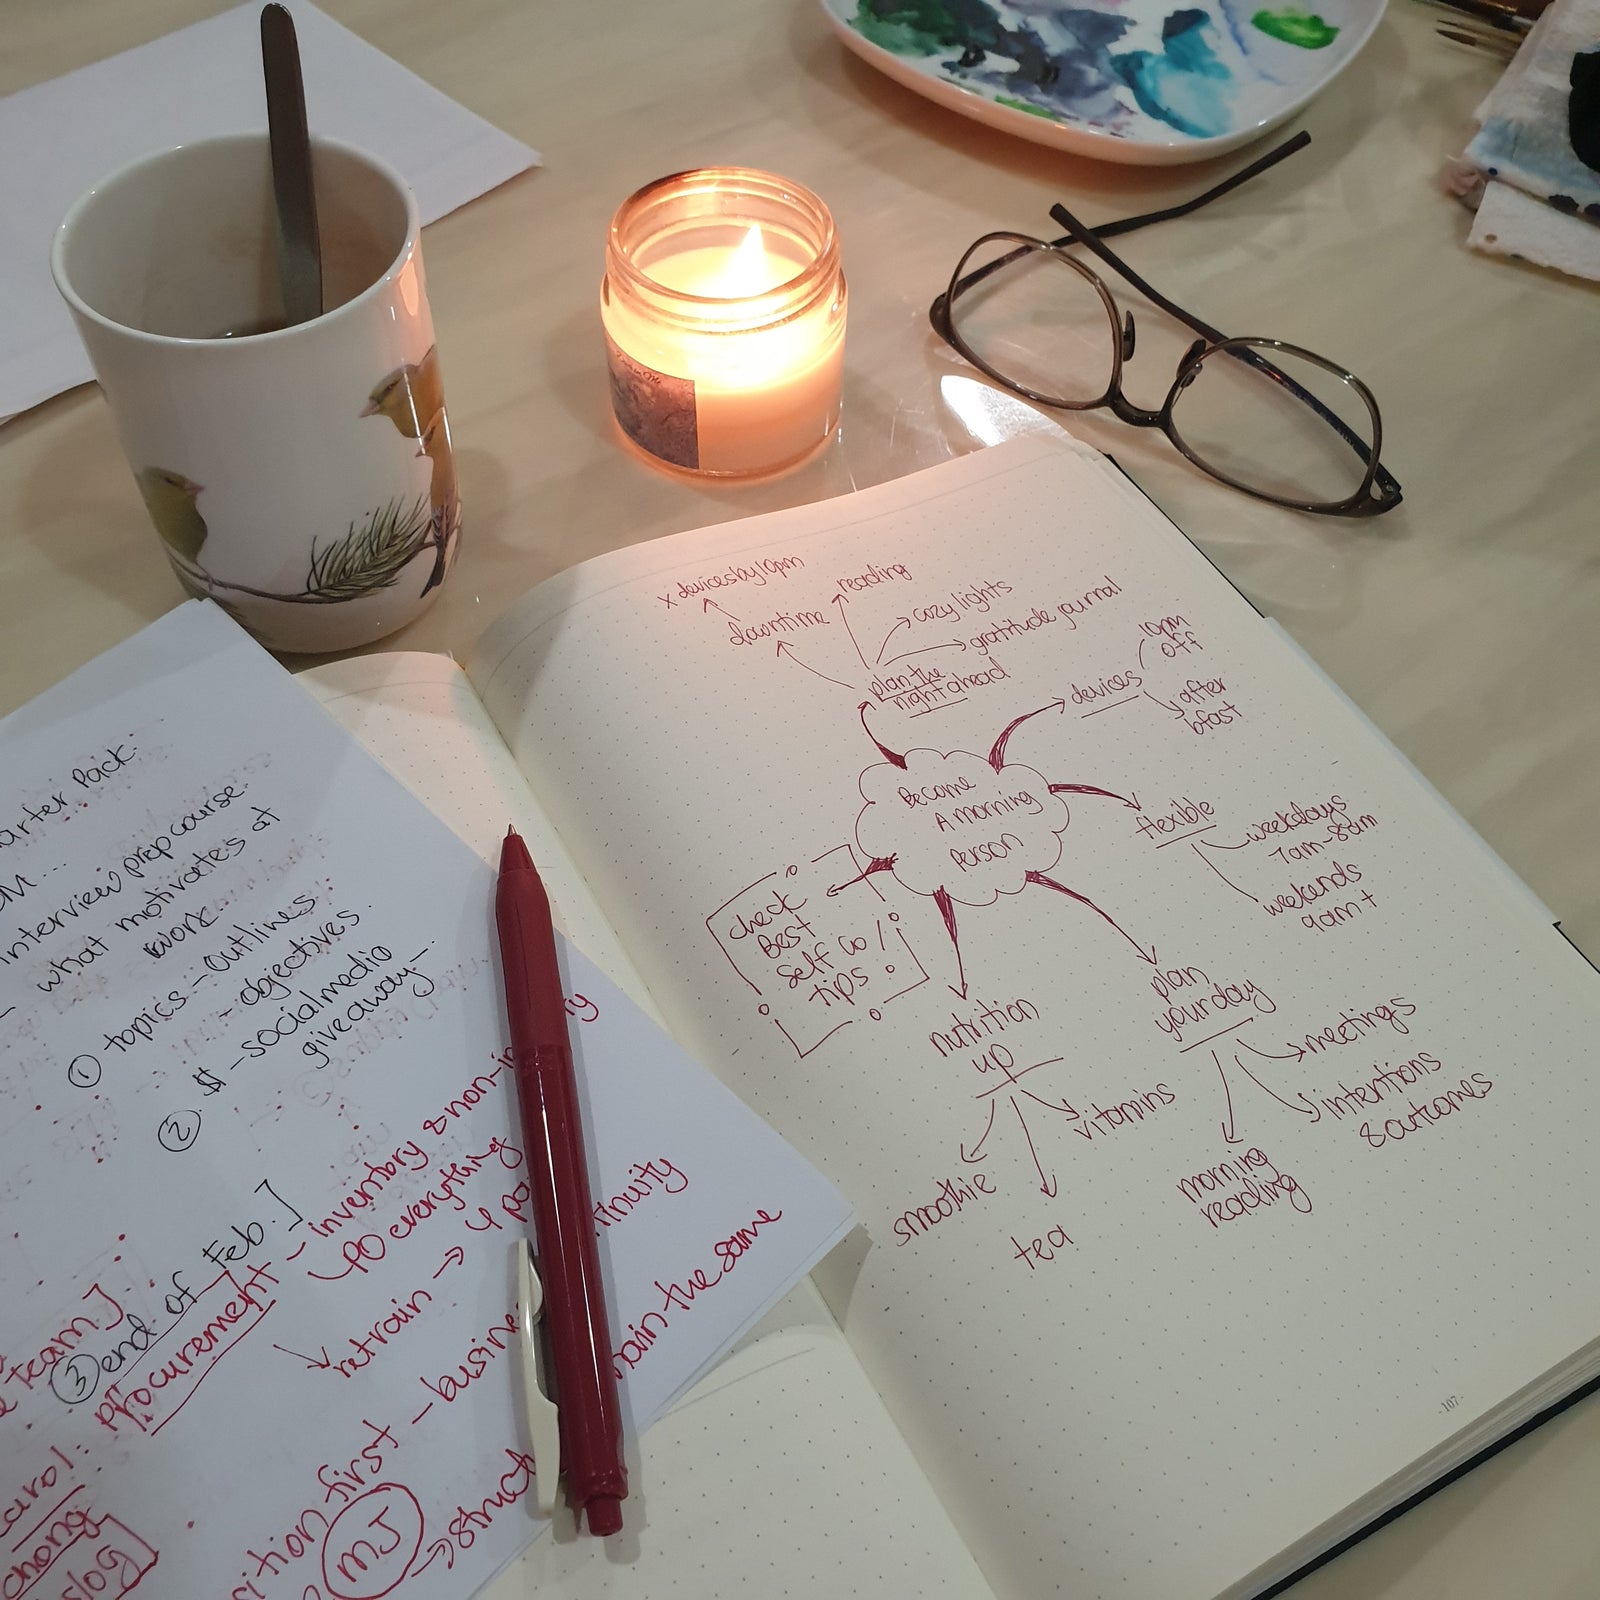 x devices by 10pm
reading
downtime
cozy lights
gratitude journal
plan the
night ahead
devices
10pm
off
after
bfast
Become
A morning
Person
flexible
weekdays
7am-8am
weekends
9am+
check
Best
Self Co
tips
nutrition
up
smoothie
tea
vitamins
plan
your day
meetings
intentions
& outcomes
morning
reading
-107-
Pack.
interview prep course.
- what motivates at
work.
① topics - outlines
- objectives.
② $ - social media
giveaway -
③ end of Feb.]
team]
procurement - inventory & non-in
↳ PO everything
retrain → 4
tinuity
first - busine
the same
MJ
→ struct